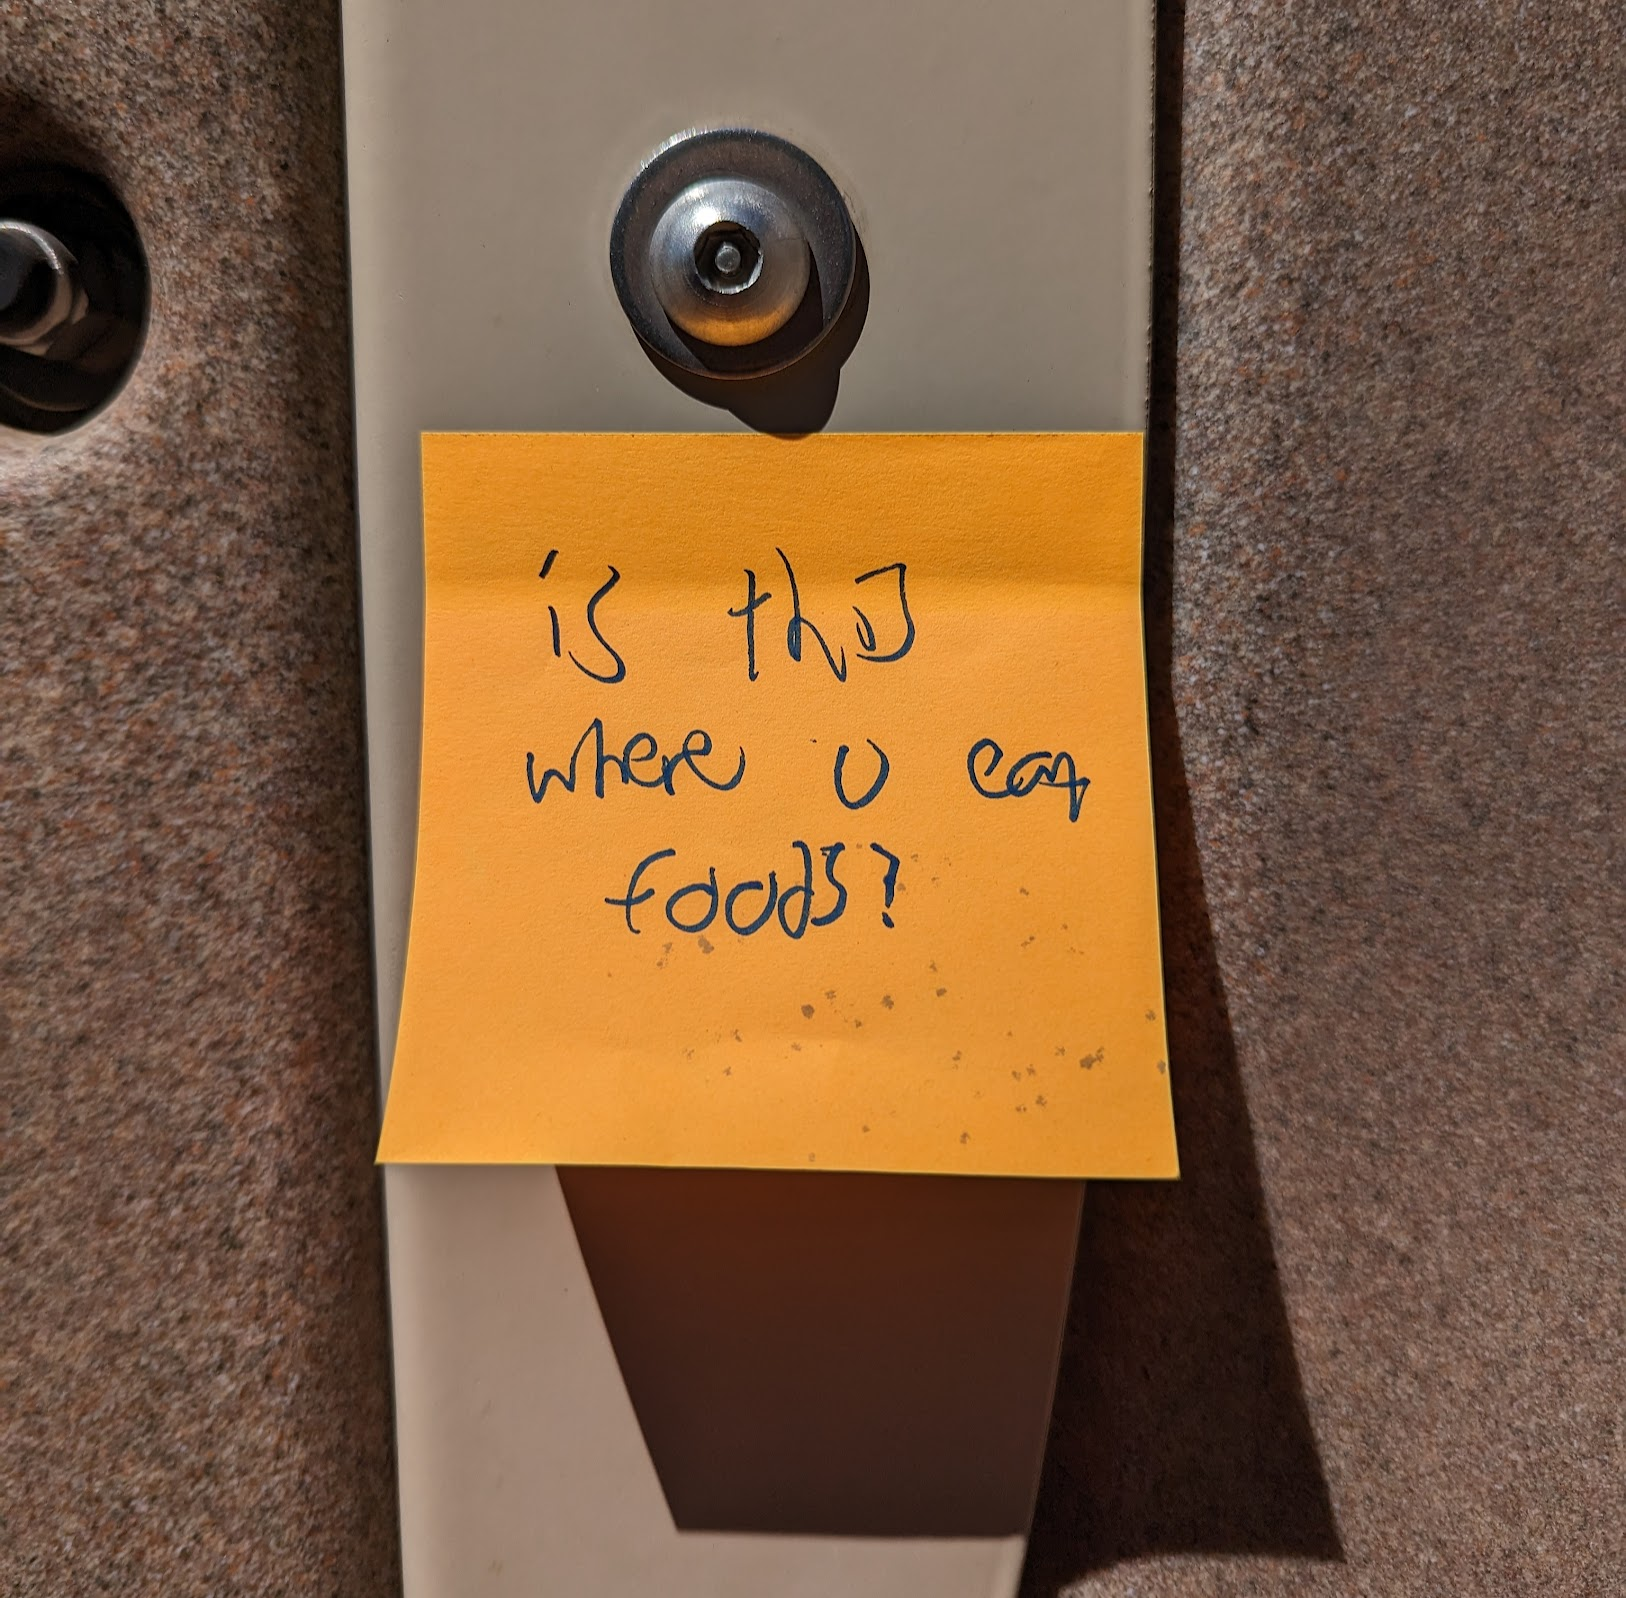 is this
where u eat
foods?